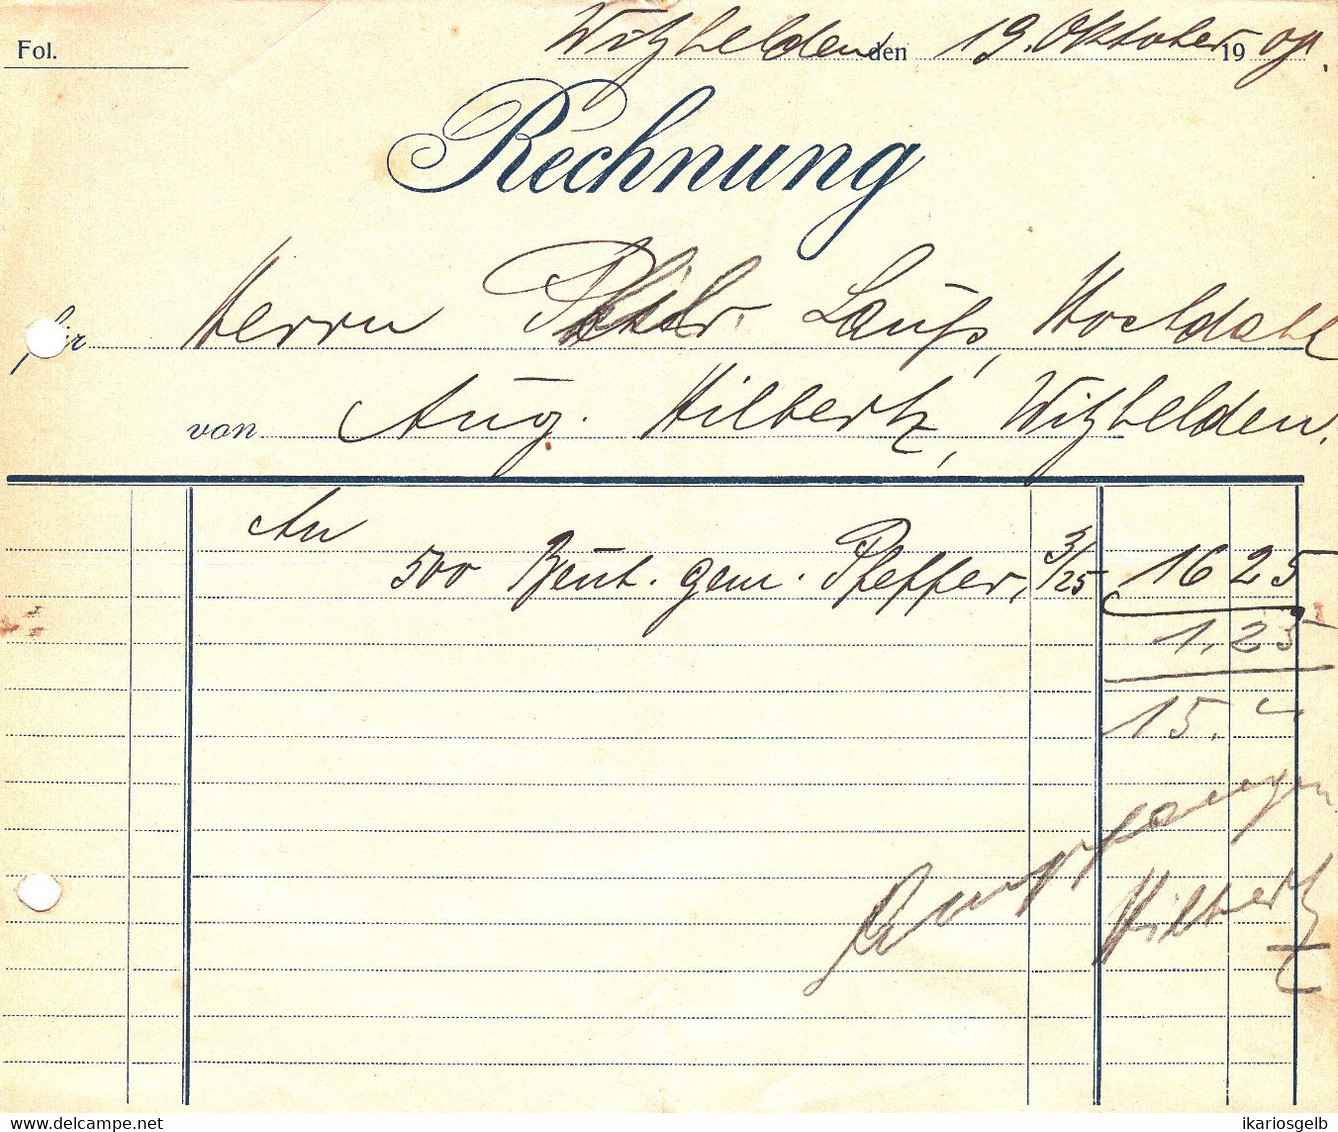 Fol.
Witzhelden den 19. Oktober 1909.
Rechnung
für Herrn Peter Laufs, Hochdahl
von Aug. Hilbertz, Witzhelden.
An
500 Beut. gem. Pfeffer, 3/25 16 25
1.25
15. –
Empfangen
Hilbertz
delcampe.net
ikariosgelb